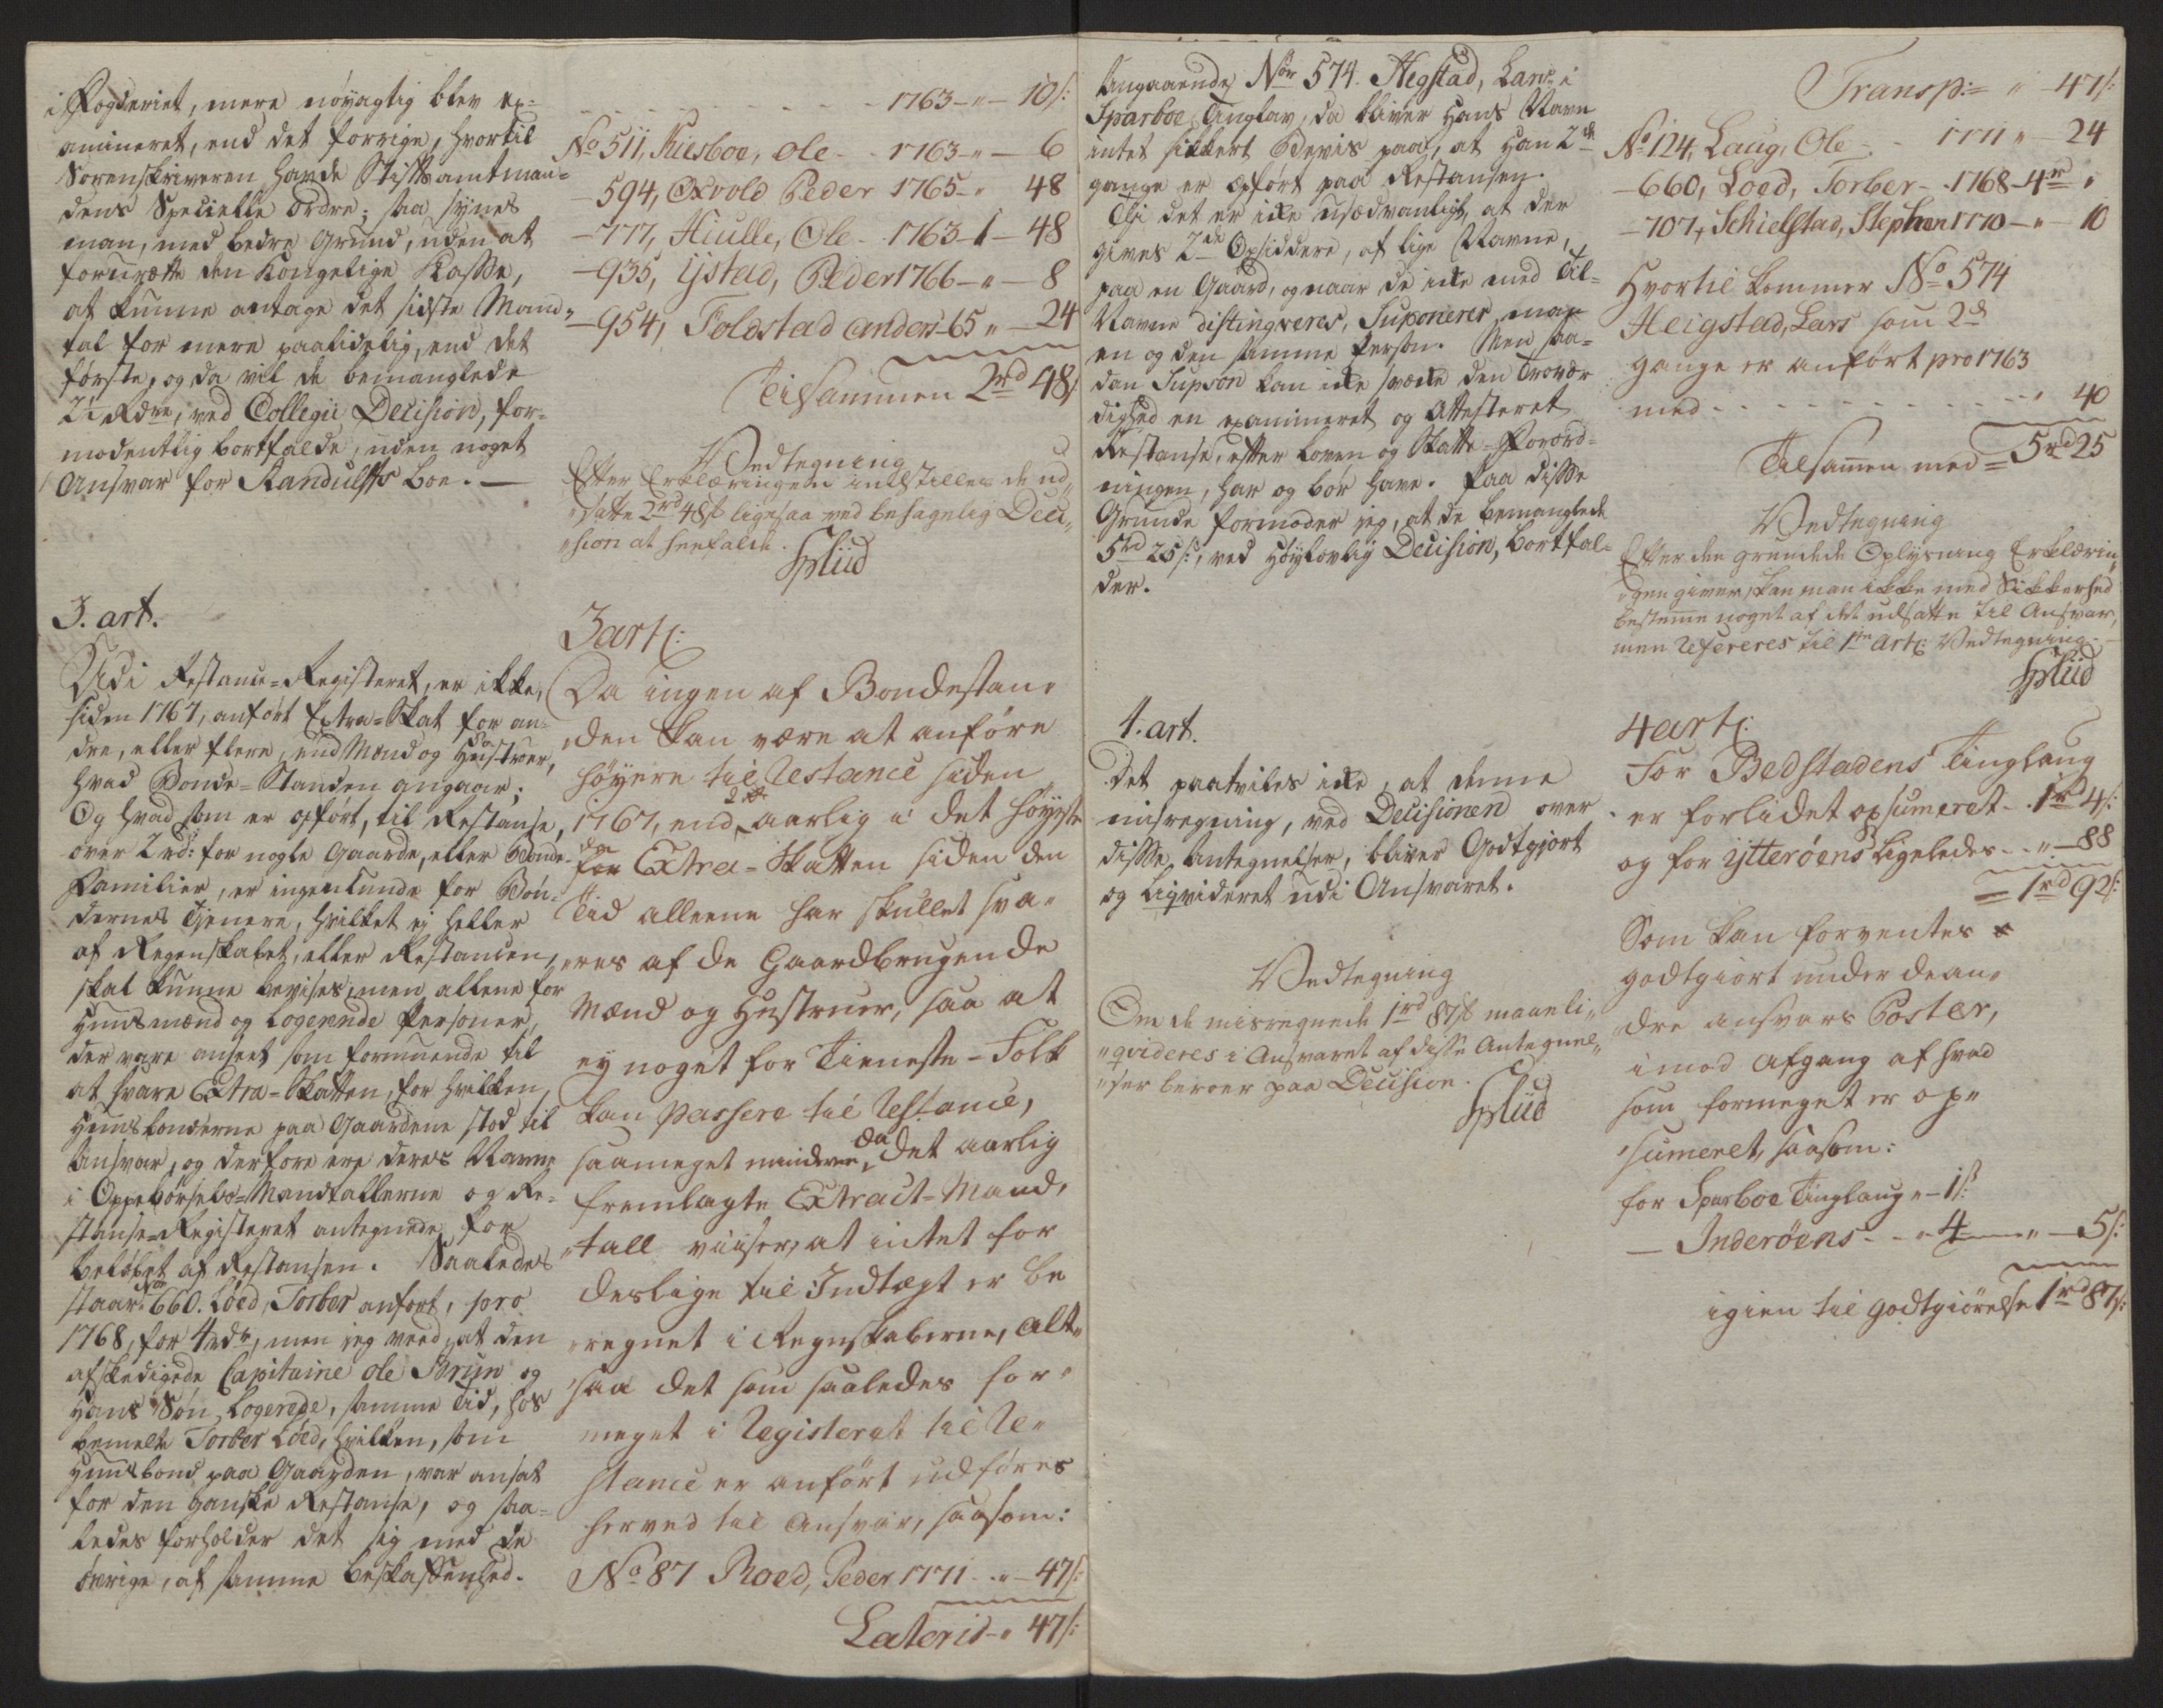 i Fogderiet, mere nöyagtig blev ex-
amineret, end det forrige, hvortil
Sorenskriveren havde Stiftsamtman-
dens Specielle Ordre; saa synes
man, med bedre Grund, uden at
forurætte den Kongelige Kasse,
at kunne antage det sidste Mand-
tal for mere paalidelig, end det
förste, og da vil de bemanglede
21 Rdr, ved Collegii Decision, for-
modentlig bortfalde, uden noget
Ansvar for Randulffs Boe. —
3. art.
Udi Restance-Registeret, er ikke,
siden 1767, anfört Extra-Skat for an-
dre, eller flere, end Mand og Hustruer,
hvad Bonde-Standen angaar;
Og hvad som er opfört, til Restance,
over 2 rd: for nogle Gaarde, eller Bonde-
Familier, er ingenlunde for Bön-
dernes Tjenere, hvilket ej heller
af Regenskabet, eller Restancen,
skal kunne bevises, men allene for
Huusmænd og Logerende Personer,
der vare anseet som formuende til
at svare Extra-Skatten, for hvilken,
Huusbonderne paa Gaardene stod til
Ansvar, og derfore ere deres Navne
i Oppebörsels-Mandtallerne og Re-
stance-Registeret antegnede for
Belöbet af Restansen. Saaledes
staar No 660. Loed, Torber anfört, pro
1768, for 4 rdr, men jeg veed, at den
afskedigede Capitaine Ole Brun og
Hans Sön, Logerede, samme Tid, hos
bemelte Torber Loed, hvilken, som
Huusbond paa Gaarden, var ansat
for den ganske Restanse, og saa-
ledes forholder det sig med de
övrige, af samme Beskaffenhed.
1763 - " - 10 s:
No 511, Kiesboe, Ole - - 1763 - " - 6
- 594, Oxvold Peder 1765 - " 48
- 777, Hiulle, Ole - 1763 - 1 - 48
- 935, Ystad, Peder 1766 - " - 8
- 954, Foldstad Anders - 65 " - 24
Tilsammen 2rd 48 s
Vedtegning
Efter Erklæringen indstilles de ud„
„satte 2rd 48 s ligesaa ved behagelig Deci„
„sion at henfalde.
Splüd
3 art:
Da ingen af Bondestan„
„den kan være at anföre
höyere til Restance siden
1767, end 2 rd aarlig i det höyeste
da Extra-Skatten siden den
Tid alleene har skullet sva„
„res af de Gaardbrugende
Mænd og Hustruer, saa at
ey noget for Tieneste-Folk
kan passere til Restance,
saameget mindre da det aarlig
fremlagte Extract-Mand„
„tall viiser, at intet for
deslige til Indtægt er be
„regnet i Regnskaberne, Alt„
„saa det som saaledes for„
meget i Registeret til Re„
stance er anfört udföres
herved til Ansvar, saasom:
No 87 Roed, Peder 1771 - " - 47 s:
Lateris - " 47 s:
Angaaende Nor 574. Hegstad, Lars i
Sparboe Tinglav, da bliver Hans Navn
intet sikkert Beviis paa, at Han 2de
gange er opfört paa Restansen.
Thi det er icke usædvanligt, at der
gives 2de Opsiddere, af lige Navne,
paa en Gaard, og naar de icke med Til-
Navne distingveres, Suponerer man
en og den samme Person. Men saa-
dan Supson kan icke svække den Trovær
dighed en examineret og Attesteret
Restanse, efter Loven og Skatte-Forord-
ningen, har og bör have. Paa disse
Grunde formoder jeg, at de bemanglede
5rd 25 s:, ved Höylovlig Decision, bortfal-
der.
4. art.
Det paatviles icke, at denne
misregning, ved Decisionen over
disse Antegnelser, bliver Godtgjort
og Liqvideret udi Ansvaret.
Vedtegning
Om de misregnede 1rd 87 s maae li„
„qvideres i Ansvaret af disse Antegnel„
„ser beroer paa Decision.
Splüd
Transp: = " - 47 s:
No 124, Laug, Ole - - 1771 " - 24
- 660, Loed, Torber - - 1768 - 4rd "
- 707, Schielstad, Stephen 1770 - " - 10
Hvortil kommer No 574
Heigstad, Lars som 2de
gange er anfört pro 1763
med - - - - - - - - " 40
Tilsammen med = 5rd 25
Vedtegning
Efter den grundede Oplysning Erklærin„
„gen giver, kan man ikke med Sikkerhed
bestemme noget af det udsatte til Ansvar,
men Refereres til 1te Art: Vedtegning. —
Splüd
4 art:
For Bedstadens Tinglaug
er forlidet opsumeret - 1rd 4 s:
og for Ytteröens ligeledes - " - 88
= 1rd 92 s:
Som kan forventes
godtgiort under de an„
„dre Ansvars Poster,
imod Afgang af hvad
som formeget er op„
„sumeret, saasom:
for Sparboe Tinglaug " - 1 s:
— Inderöens - - " 4 — " - 5 s:
igien til godtgiörelse 1rd 87 s: